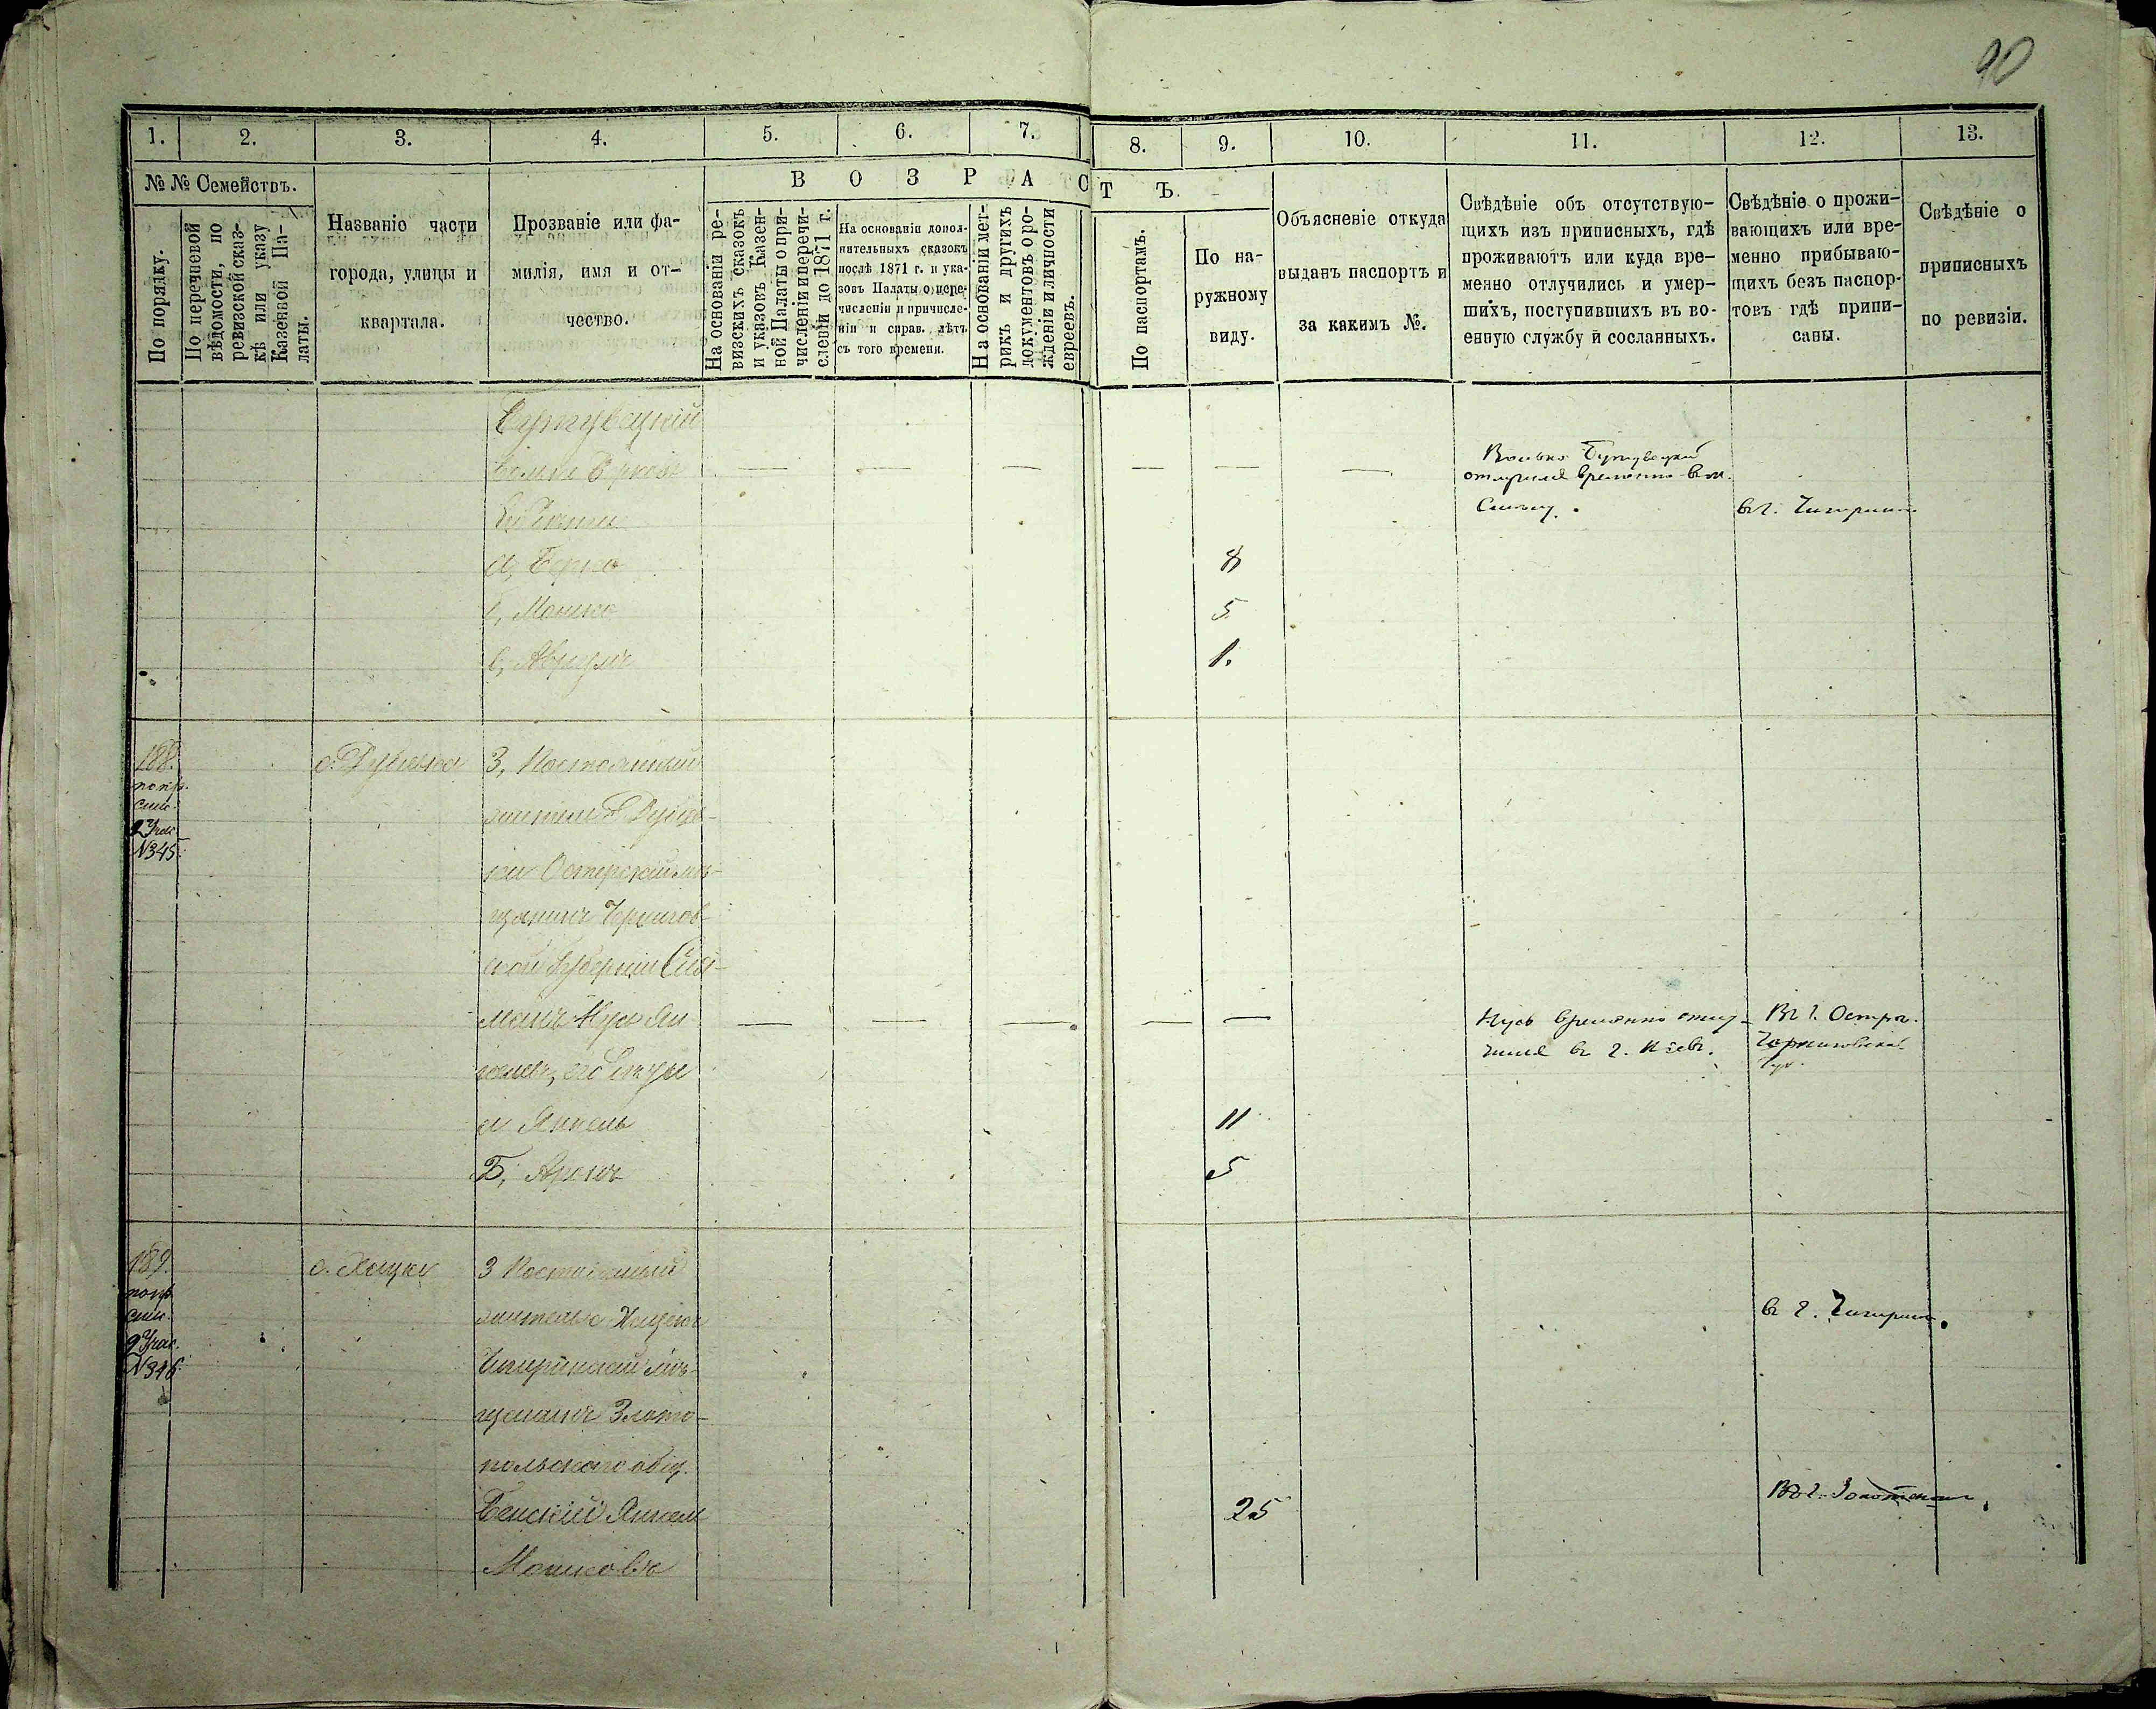 90
1. 2. 3. 4. 5. 6. 7. 8. 9. 10. 11. 12. 13.
№ № Семействъ.
По порядку.
По перечневой
вѣдомости, по
ревизской сказ-
кѣ или указу
Казенной Па-
латы.
Названіе части
города, улицы и
квартала.
Прозваніе или фа-
милія, имя и от-
чество.
В О З Р А С Т Ъ.
На основаніи ре-
визскихъ сказокъ
и указовъ Казен-
ной Палаты о при-
численіи и перечи-
сленіи до 1871 г.
На основаніи допол-
нительныхъ сказокъ
послѣ 1871 г. и ука-
зовъ Палаты о пере-
численіи и причисле-
ніи и справ. лѣтъ
съ того времени.
На основаніи мет-
рикъ и другихъ
документовъ о ро-
жденіи и личности
евреевъ.
По паспортамъ.
По на-
ружному
виду.
Объясненіе откуда
выданъ паспортъ и
за какимъ №.
Свѣдѣніе объ отсутствую-
щихъ изъ приписныхъ, гдѣ
проживаютъ или куда вре-
менно отлучились и умер-
шихъ, поступившихъ въ во-
енную службу и сосланныхъ.
Свѣдѣніе о прожи-
вающихъ или вре-
менно прибываю-
щихъ безъ паспор-
товъ гдѣ припи-
саны.
Свѣдѣніе о
приписныхъ
по ревизіи.
— — — — — —
временно
въ г. Чигирин
а, Берко 8
б, Мошко 5
в, Аврумъ 1.
188.
попр.
спис.
2 Учас.
№345.
3, Постоянный
житель
Остерскій мѣ-
щанинъ Чернигов-
ской Губерніи
Нусь Ян-
— — — — —
Нусь временно отлу-
чился въ г. Кіевъ.
Въ г. Остръ.
Черниговской
Губ.
келевъ, его
а Янкель 11
Б, Аронъ 5
189.
попр.
спис.
2 Учас.
№346.
с. Хацки
3 Постоянный
житель с. Хацекъ
Чигиринскій мѣ-
щанинъ Злато-
польскаго общ.
въ г. Чигирин.
Янкель
Мошковъ
25
Въ г.